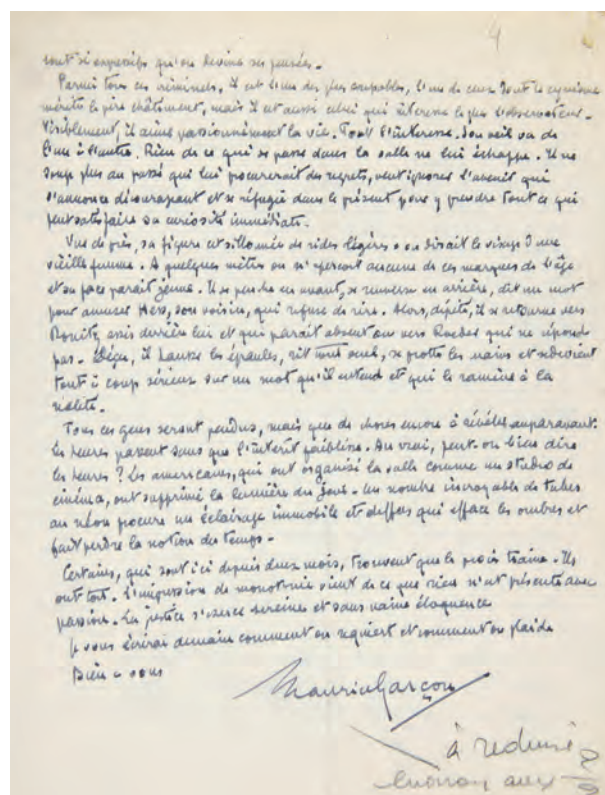 4
sont si expressifs qu'on devine ses pensées.
Parmi tous ces criminels, il est l'un des plus coupables, l'un de ceux dont le cynisme
mérite le pire châtiment, mais il est aussi celui qui intéresse le plus l'observateur.
Visiblement, il aime passionnément la vie. Tout l'intéresse. Son oeil va de
l'un à l'autre. Rien de ce qui se passe dans la salle ne lui échappe. Il ne
songe plus au passé qui lui procurerait des regrets, veut ignorer l'avenir qui
s'annonce décourageant et se réfugie dans le présent pour y prendre tout ce qui
peut satisfaire sa curiosité immédiate.
Vue de près, sa figure est sillonnée de rides légères : on dirait le visage d'une
vieille femme. A quelques mètres on n'aperçoit aucune de ces marques de l'âge
et sa face parait jeune. Il se penche en avant, se renverse en arrière, dit un mot
pour amuser Hess, son voisin, qui refuse de rire. Alors, dépité, il se retourne vers
Doenitz assis derrière lui et qui parait absent ou vers Raeder qui ne répond
pas. Déçu, il hausse les épaules, rit tout seul, se frotte les mains et redevient
tout à coup sérieux sur un mot qu'il entend et qui le ramène à la
réalité.
Tous ces gens seront pendus, mais que de choses encore à révéler auparavant.
Les heures passent sans que l'intérêt faiblisse. Au vrai, peut-on bien dire
les heures ? Les américains, qui ont organisé la salle comme un studio de
cinéma, ont supprimé la lumière du jour. Un nombre incroyable de tubes
au néon procure un éclairage immobile et diffus qui efface les ombres et
fait perdre la notion des temps.
Certains, qui sont ici depuis deux mois, trouvent que le procès traine. Ils
ont tort. L'impression de monotonie vient de ce que rien n'est présenté avec
passion. La justice s'exerce sereine et sans vaine éloquence
Je vous écrirai demain comment on requiert et comment on plaide
Bien à vous
Maurice Garçon
à reduire